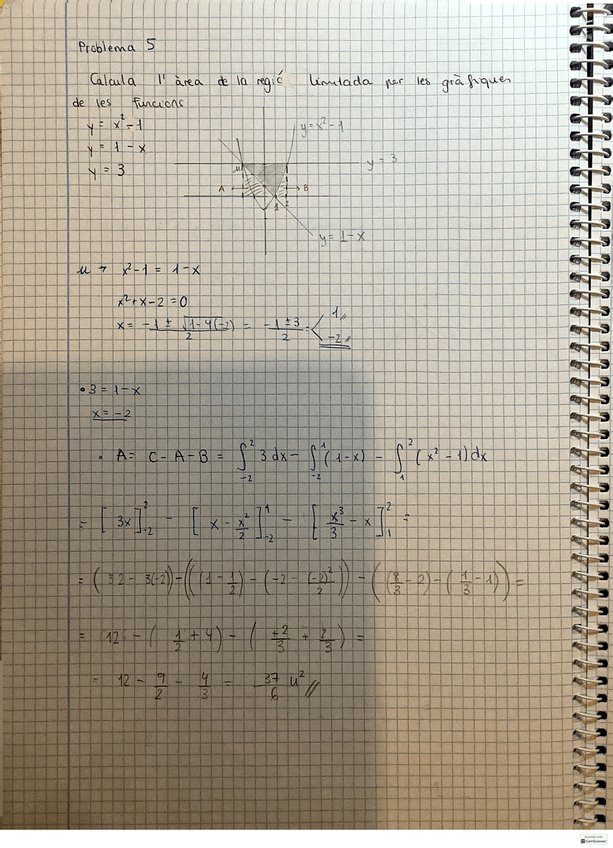 Problema 5
Calcula l'àrea de la regió limitada per les gràfiques
de les funcions
y = x² - 1
y = 1 - x
y = 3
y = x² - 1
y = 3
A
B
1
2
y = 1 - x
x² - 1 = 1 - x
x² + x - 2 = 0
x = (-1 ± √(1 - 4(-2)))/2 = (-1 ± 3)/2 = < 1 // -2 //
• 3 = 1 - x
x = -2
• A = C - A - B = ∫₋₂² 3 dx - ∫₋₂¹ (1 - x) - ∫₁² (x² - 1) dx
= [3x]₋₂² - [x - x²/2]₋₂¹ - [x³/3 - x]₁² =
= (3·2 - 3(-2)) - ((1 - 1/2) - (-2 - (-2)²/2)) - ((8/3 - 2) - (1/3 - 1)) =
= (12) - (1/2 + 4) - (+2/3 + 2/3) =
= 12 - 9/2 - 4/3 = 37/6 u² //
CamScanner